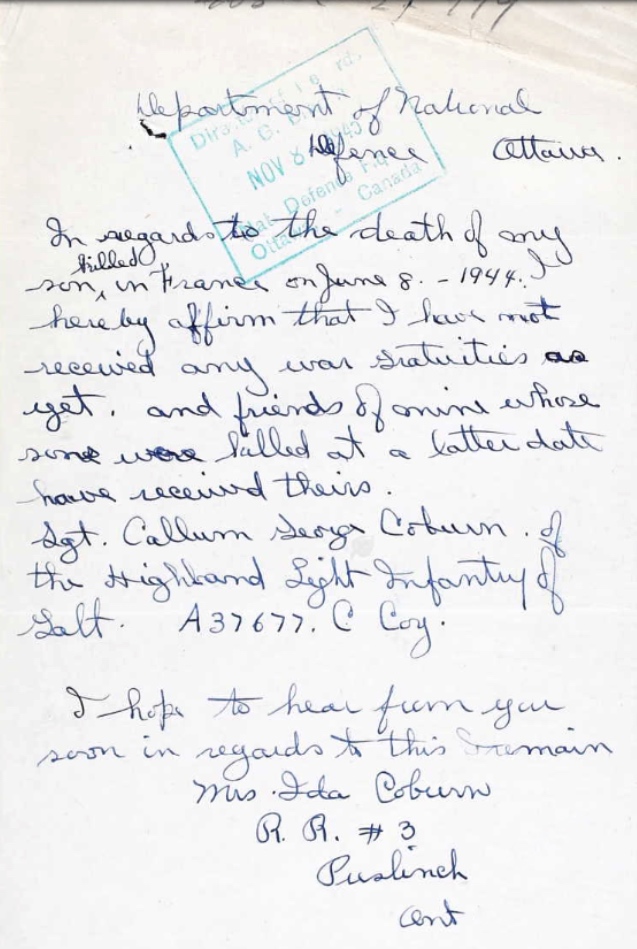 Department of National
Defence Ottawa.
A. G.
NOV 8 1945
Nat. Defence
Ottawa - Canada
In regards to the death of my
son, killed in France on June 8. - 1944. I
hereby affirm that I have not
received any war gratuities as
yet. and friends of mine whose
sons were killed at a latter date
have received theirs.
Sgt. Callum George Coburn. of
the Highland Light Infantry of
Galt. A37677. C Coy.
I hope to hear from you
soon in regards to this I remain
Mrs. Ida Coburn
R. R. # 3
Puslinch
Ont